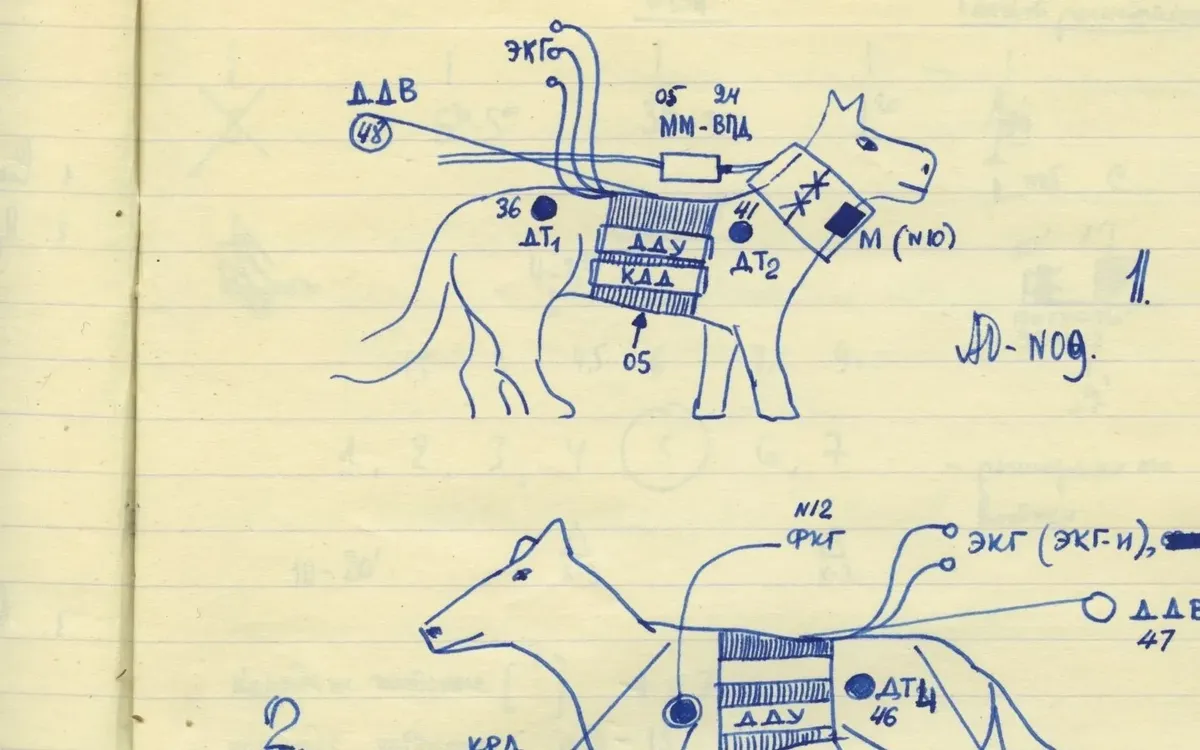 ЭКГ
ДДВ
48
05 24
ММ-ВПД
36
ДТ1
41
ДТ2
ДДУ
КДД
М (N10)
05
1.
N09.
N12
ФКГ
ЭКГ (ЭКГ-И),
ДДВ
47
ДТ4
46
ДДУ
2